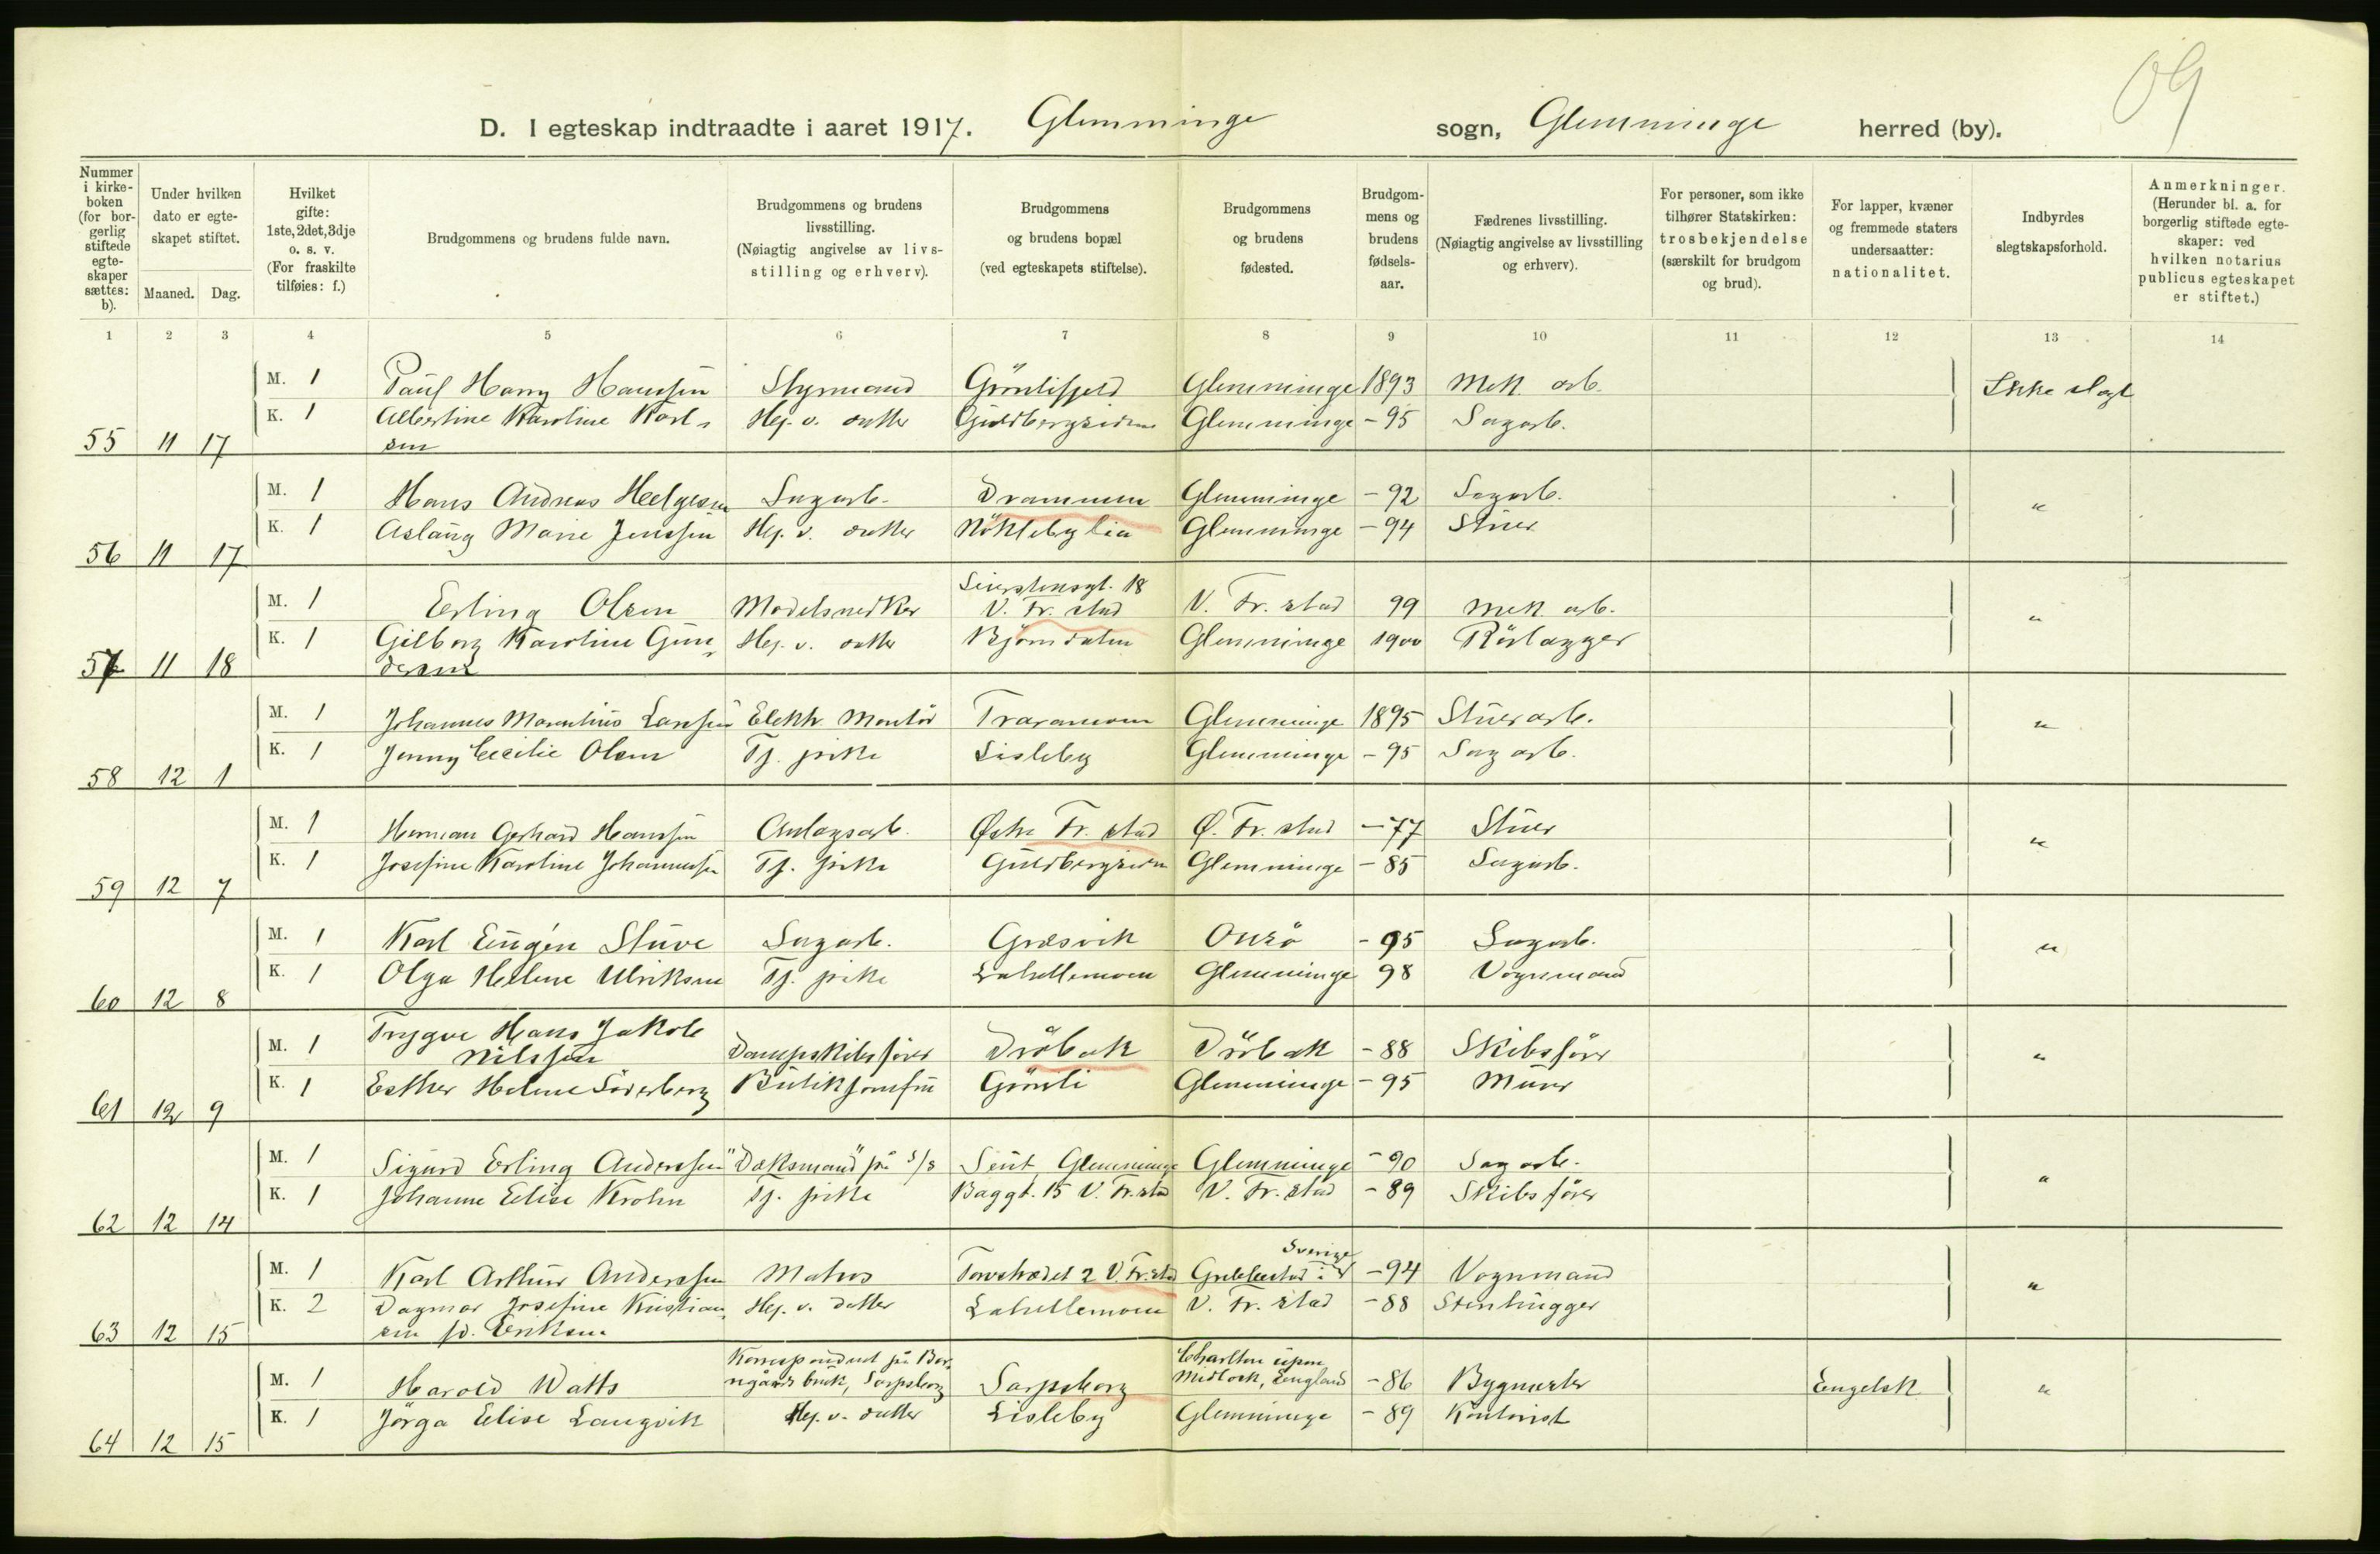 09
D. I egteskap indtraadte i aaret 1917. Glemminge sogn, Glemminge herred (by).
Nummer i kirkeboken (for borgerlig stiftede egteskaper sættes: b).
Under hvilken dato er egteskapet stiftet.
Maaned. Dag.
Hvilket gifte: 1ste, 2det, 3dje o. s. v. (For fraskilte tilføies: f.)
Brudgommens og brudens fulde navn.
Brudgommens og brudens livsstilling. (Nøiagtig angivelse av livsstilling og erhverv).
Brudgommens og brudens bopæl (ved egteskapets stiftelse).
Brudgommens og brudens fødested.
Brudgommens og brudens fødselsaar.
Fædrenes livsstilling. (Nøiagtig angivelse av livsstilling og erhverv).
For personer, som ikke tilhører Statskirken: trosbekjendelse (særskilt for brudgom og brud).
For lapper, kvæner og fremmede staters undersaatter: nationalitet.
Indbyrdes slegtskapsforhold.
Anmerkninger. (Herunder bl. a. for borgerlig stiftede egteskaper: ved hvilken notarius publicus egteskapet er stiftet.)
1 2 3 4 5 6 7 8 9 10 11 12 13 14
M. 1 Paul Harry Hanssen Styrmand Grönlifjeld Glemminge 1893 Mek. arb. Ikke slegt
K. 1 Albertine Karoline Karl- Hej. v. datter Guldbergsiden Glemminge -95 Sagarb.
55 11 17 sen
M. 1 Hans Andreas Helgesen Sagarb. Drammen Glemminge -92 Sagarb. "
K. 1 Aslaug Marie Jenssen Hej. v. datter Nöklebylia Glemminge -94 Stuer
56 11 17
Seierstensgt. 18
M. 1 Erling Olsen Modelsnedker V. Fr. stad V. Fr. stad 99 Mek. arb. "
K. 1 Gilborg Karoline Gun- Hej. v. datter Björndalen Glemminge 1900 Rörlægger
57 11 18 dersen
M. 1 Johannes Marentius Larssen Elektr. Montör Traramoen Glemminge 1895 Stuerarb. "
K. 1 Jenny Cecilie Olsen Tj. pike Lisleby Glemminge -95 Sagarb.
58 12 1
M. 1 Herman Gerhard Hanssen Anlægsarb. Østre Fr. stad Ø. Fr. stad -77 Stuer "
K. 1 Josefine Karoline Johannessen Tj. pike Guldbergsiden Glemminge -85 Sagarb.
59 12 7
M. 1 Karl Eugén Stuve Sagarb. Græsvik Onsö -95 Sagarb. "
K. 1 Olga Helene Ulriksen Tj. pike Lahellemoen Glemminge 98 Vognmand
60 12 8
Trygve Hans Jakob
M. 1 Nilssen Dampskibsförer Dröbak Dröbak -88 Skibsförer "
K. 1 Esther Helene Söderberg Butikjomfru Grönli Glemminge -95 Murer
61 12 9
M. 1 Sigurd Erling Anderssen "Dæksmand" på S/S Seut, Glemminge Glemminge -90 Sagarb. "
K. 1 Johanne Elise Krohn Tj. pike Baggt. 15 V. Fr. stad V. Fr. stad -89 Skibsförer
62 12 14
Sverige
M. 1 Karl Arthur Anderssen Matros Torvstrædet 2 V. Fr. stad Grebbestad i -94 Vognmand "
K. 2 Dagmar Josefine Kristian- Hej. v. datter Lahellemoen V. Fr. stad -88 Stenhugger
63 12 15 sen fd. Eriksen
Korrespondent på Bor- Charlton upon
M. 1 Harold Watts regårds bruk, Sarpsborg Sarpsborg Midlock, England -86 Bygmester Engelsk "
K. 1 Jörga Elise Langvik Hej. v. datter Lisleby Glemminge -89 Kontorist
64 12 15